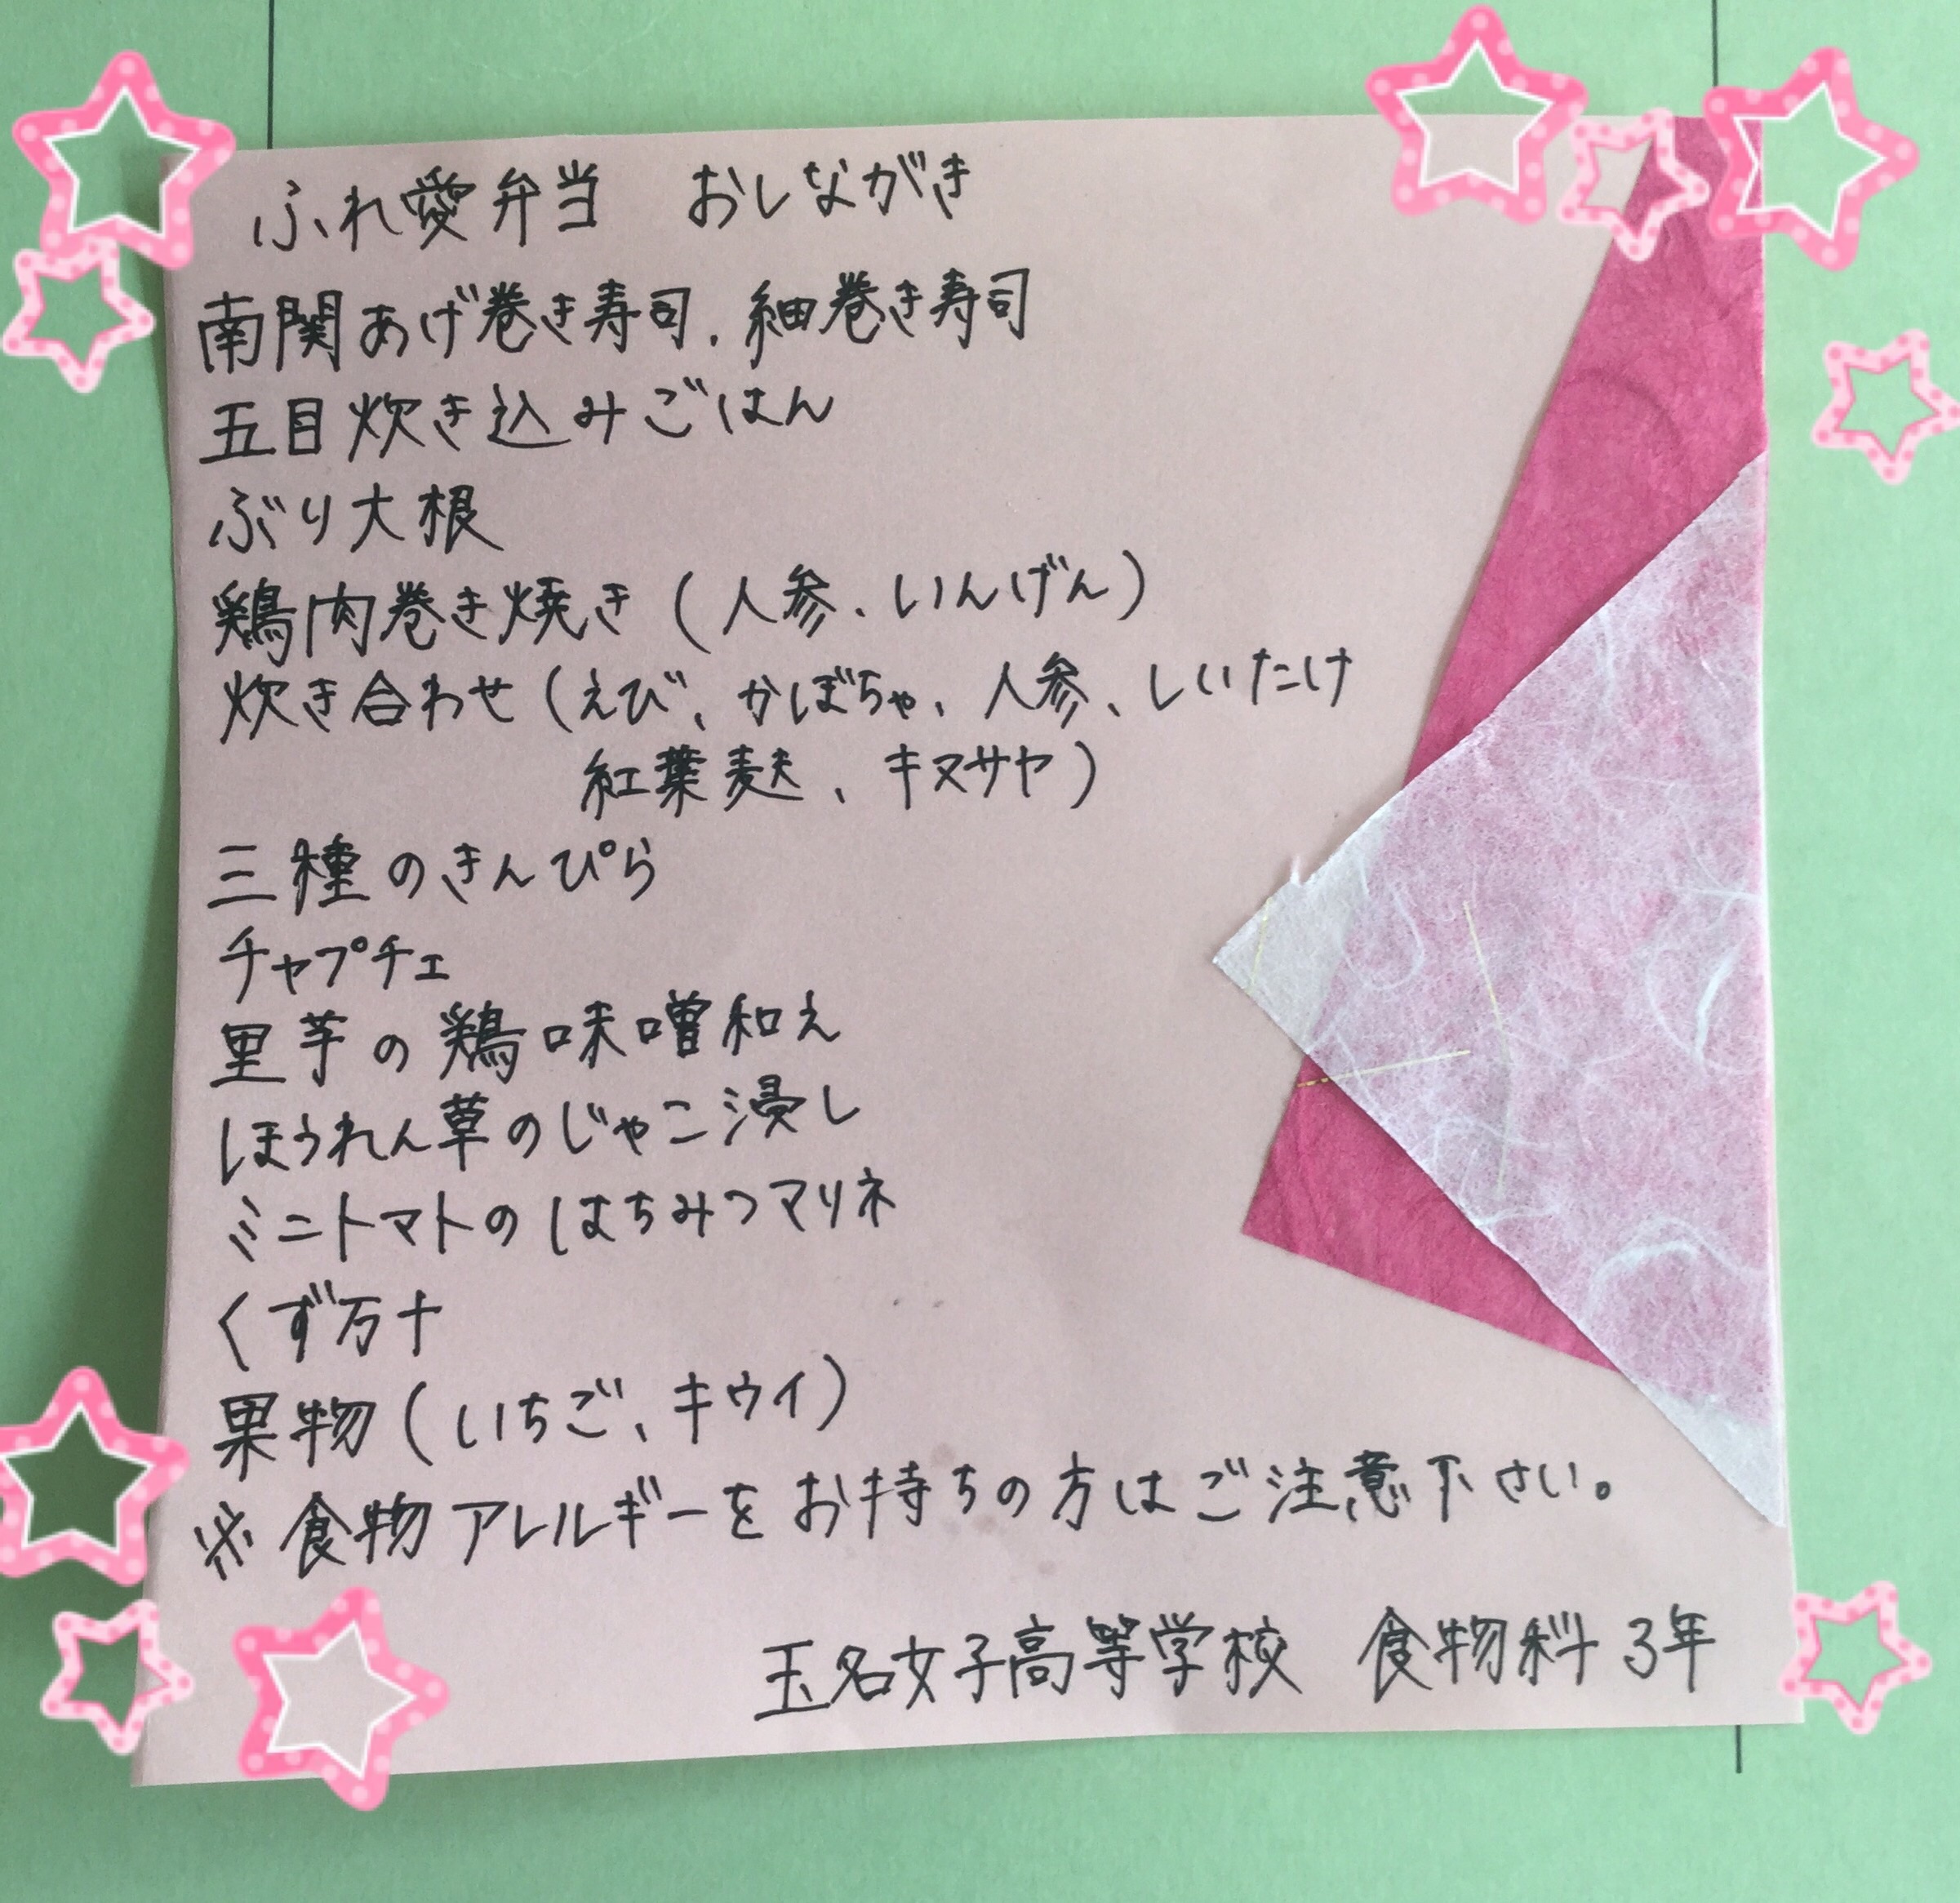 ふれ愛弁当　おしながき
南関あげ巻き寿司、細巻き寿司
五目炊き込みごはん
ぶり大根
鶏肉巻き焼き（人参、いんげん）
炊き合わせ（えび、かぼちゃ、人参、しいたけ
紅葉麸、キヌサヤ）
三種のきんぴら
チャプチェ
里芋の鶏味噌和え
ほうれん草のじゃこ浸し
ミニトマトのはちみつマリネ
くず万十
果物（いちご、キウイ）
※食物アレルギーをお持ちの方はご注意下さい。
玉名女子高等学校　食物科3年